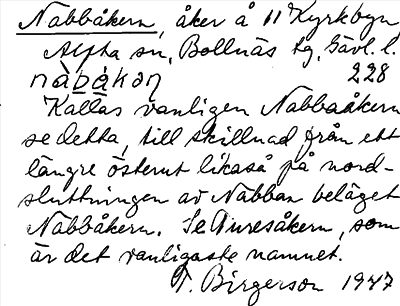 Nabbåkern, åker å 11 Kyrkbyn
Alfta sn, Bollnäs tg, Gävl. l.
nàbåkọn 228
Kallas vanligen Nabbaåkern
se detta, till skillnad från ett
längre österut likaså på nord-
sluttningen av Nabban beläget
Nabbåkern. Se Turesåkern, som
är det vanligaste namnet.
T. Birgerson 1947